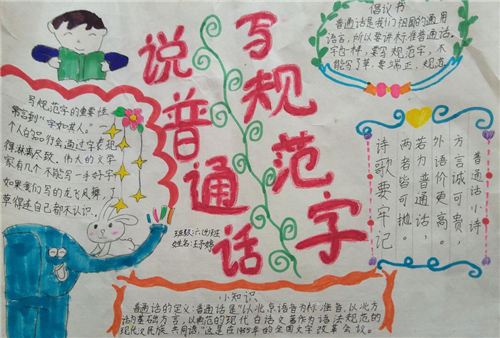 说普通话
写规范字
倡议书
普通话是我们祖国的通用
语言，所以要讲标准普通话。
写规范字的重要性
常言到“字如其人。”
个人的品行会通过字表现
得淋漓尽致，伟大的文学
家有几个不能写一手好字
如果我们写的龙飞凤舞，了
草得连自己都不认识。
普通话小诗
方言诚可贵，
外语价更高。
若为普通话，
两者皆可抛。
诗歌要牢记
小知识
普通话的定义：普通话是“以北京语音为标准音，以北方
话为基础方言，以典范的现代白话文著作为语法规范的
现代汉民族共同语，”这是在1955年的全国文字改革会议。